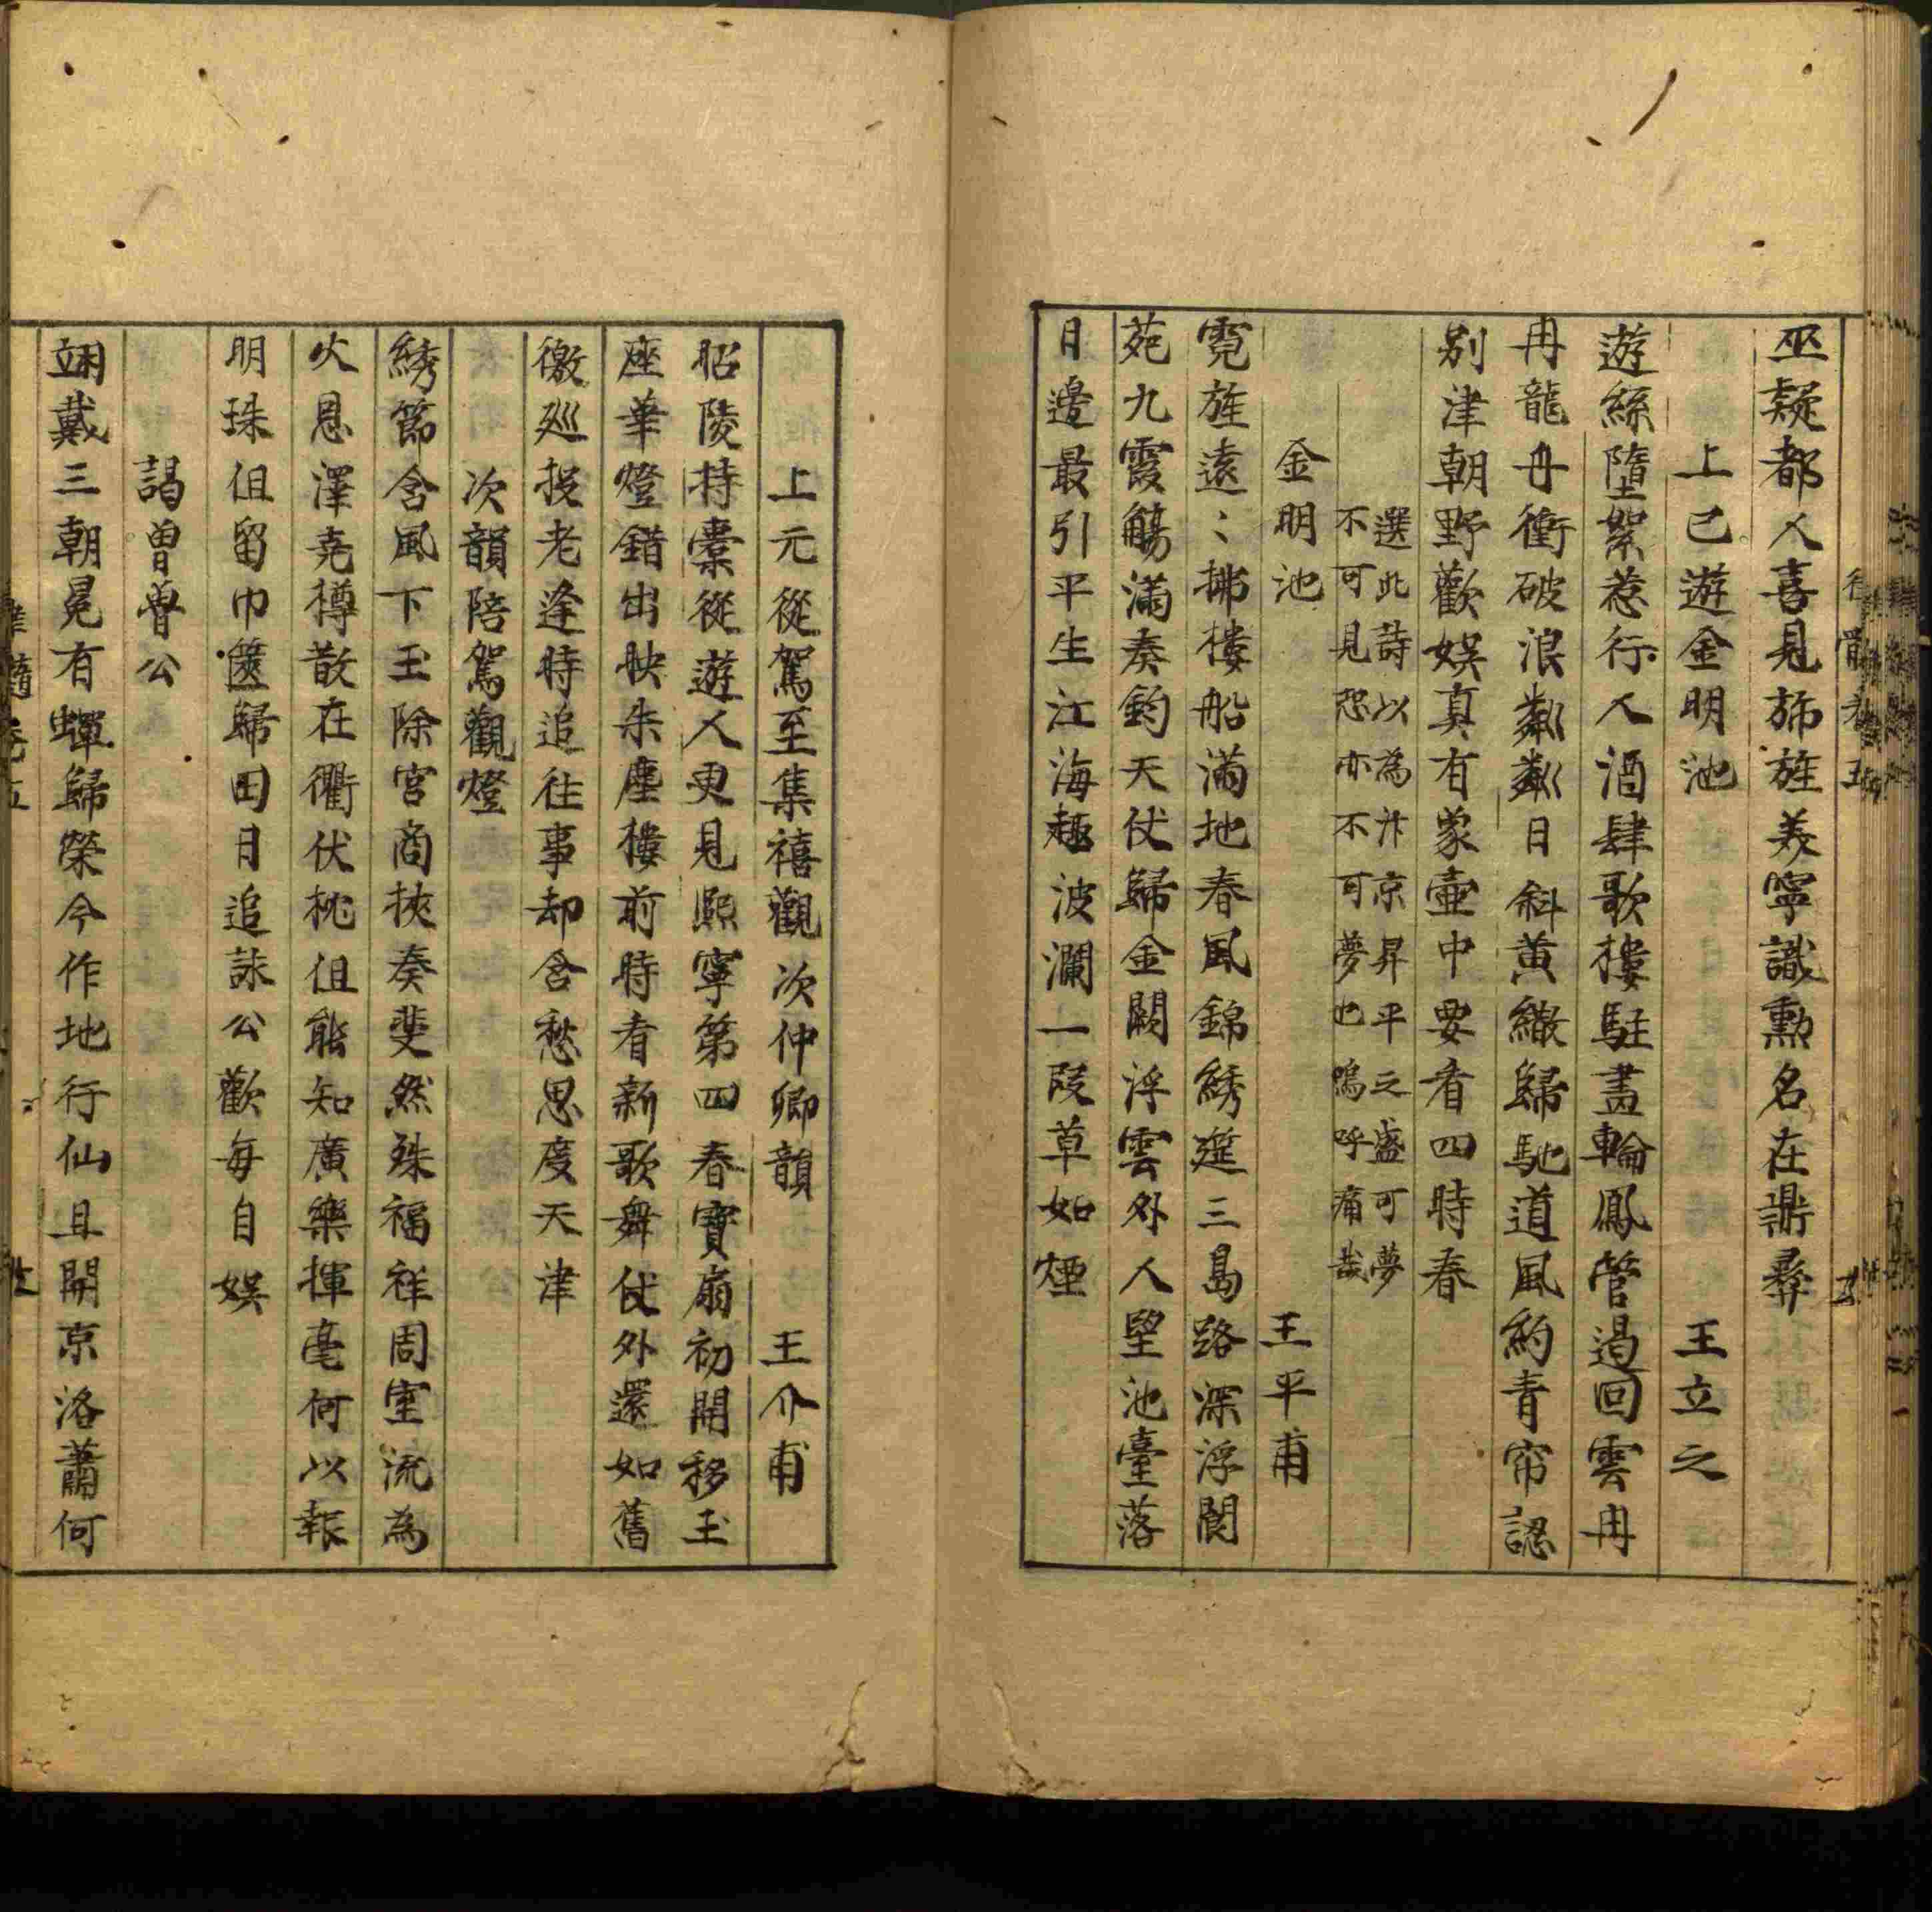 巫疑都人喜見旆旌羙寧識勲名在鼎彞
上已遊金明池 王立之
遊絲墮絮惹行人酒肆歌樓駐畫輪鳳管遏回雲冉
冉龍舟衝破浪粼粼日斜黄繖歸馳道風約青帘認
別津朝野歡娱真有象壷中要看四時春
選此詩以為汴京昇平之盛可夢
不可見恐亦不可夢也嗚呼痛哉
金明池 王平甫
霓旌遠〻拂樓船滿地春風錦綉筵三島路深浮閬
苑九霞觴滿奏鈞天仗歸金闕浮雲外人望池臺落
日邉最引平生江海趣波瀾一段草如煙
上元從駕至集禧觀次仲卿韻 王介甫
昭陵持橐從遊人更見熈寧第四春寳扇初開移玉
座華燈錯出映朱塵樓前時看新歌舞仗外還如舊
徼廵投老逢時追往事却含愁思度天津
次韻陪駕觀燈
綉節含風下玉除宮商挾奏斐然殊福祥周室流為
火恩澤堯樽散在衢伏枕但能知廣樂揮毫何以報
明珠但留巾篋歸田日追詠公歡毎自娱
謁曽魯公
翊戴三朝冕有蟬歸榮今作地行仙且開京洛蕭何